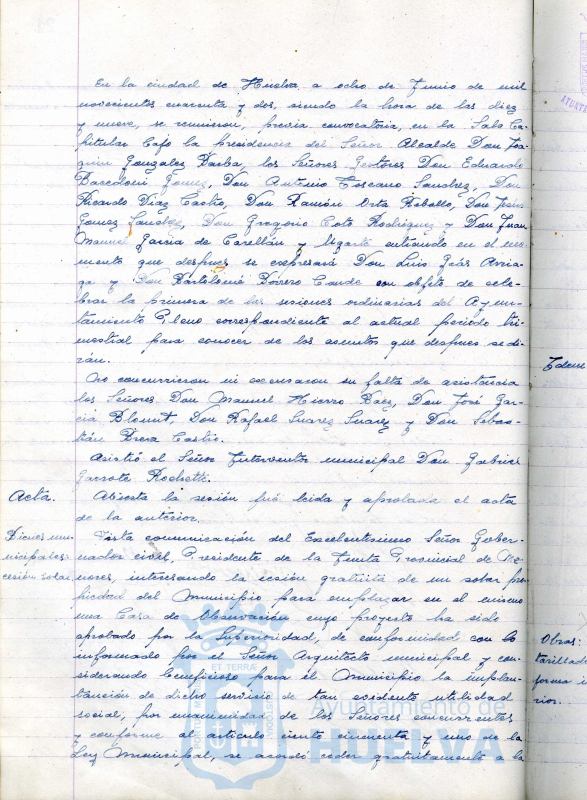 En la ciudad de Huelva a ocho de Junio de mil
novecientos cuarenta y dos, siendo la hora de las diez
y nueve, se reunieron, previa convocatoria, en la Sala Ca-
pitular bajo la presidencia del Señor Alcalde Don Joa-
quin Gonzalez Barba, los Señores Gestores Don Eduardo
Gomez, Don Antonio Toscano Sanchez, Don
Ricardo Diaz Castro, Don Ramón Orta Rebollo, Don Jesus
Gomez Sanchez, Don Gregorio Coto Rodriguez y Don Juan
Manuel Garcia de Carellán y Ugarte entrando en el mo-
mento que despues se expresará Don Luis Arria-
ga y Don Bartolomé Borrero Conde con objeto de cele-
brar la primera de las sesiones ordinarias del Ayun-
tamiento Pleno correspondiente al actual periodo tri-
mestral para conocer de los asuntos que despues se di-
rán.
No concurrieron ni excusaron su falta de asistencia
los Señores Don Manuel Hierro Baez, Don José Gar-
cia Blount, Don Rafael Suarez Suarez y Don Sebas-
tián Castro.
Asistió el Señor Interventor municipal Don Gabriel
Garrote
Acta. Abierta la sesión fué leida y aprobada el acta
de la anterior.
Bienes mu- Vista comunicación del Excelentisimo Señor Gober-
nicipales: nador civil, Presidente de la Junta Provincial de Me-
cesión solar nores, interesando la cesión gratuita de un solar pro-
piedad del Municipio para emplazar en el mismo
una Casa de Observación cuyo proyecto ha sido
aprobado por la Superioridad, de conformidad con lo
informado por el Señor Arquitecto municipal y con-
siderando beneficioso para el Municipio la implan-
tación de dicho servicio de tan evidente utilidad
social, por unanimidad de los Señores concurrentes
y conforme al articulo ciento cincuenta y uno de la
Ley Municipal, se acordó ceder gratuitamente a la
Obras:
forma in
rior.
Ayuntamiento de
HUELVA